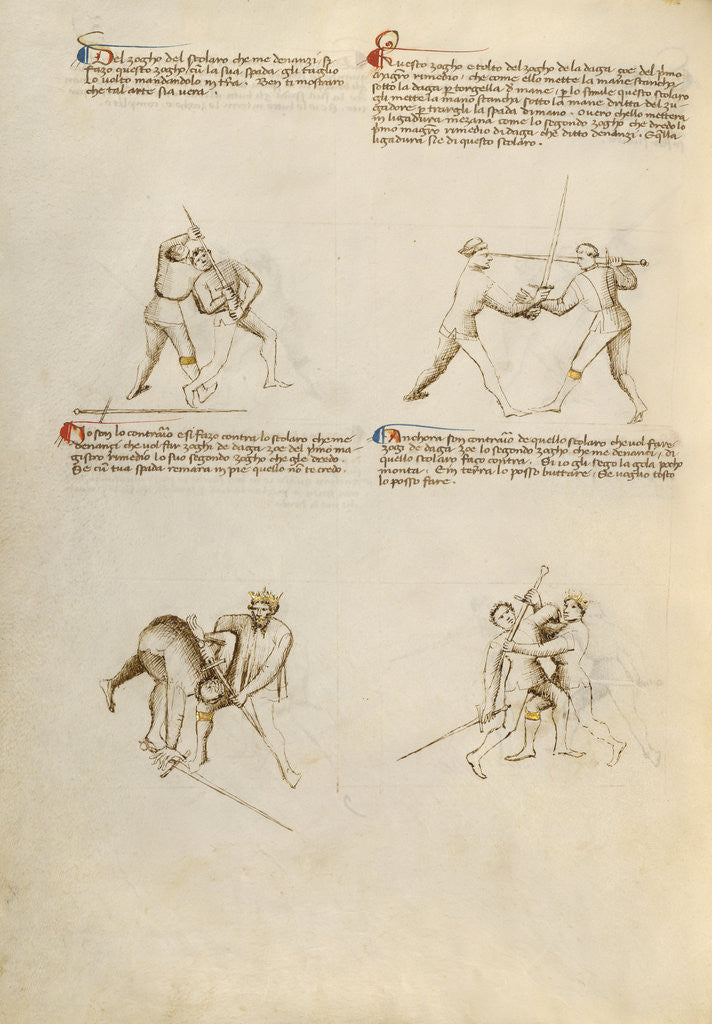 Del zogho del scolaro che me denanzi si
fazo questo zogho, cu͂ la sua spada gli taglio
lo volto mandandolo in tr͂a. Ben ti mostraro
che tal arte sia vera.
Questo zogho e tolto del zogho de la daga zoe del p͂mo
magr͂o rimedio, che come ello mette la mane stancha
sotto la daga p torgella d͂ mane, p lo simile questo scolaro
gli mette la mano stancha sotto la mane dritta del zu-
gadore p trargli la spada di mano. Overo chello mettera
in ligadura mezana come lo segondo zogho che dredo lo
p͂mo magr͂o rimedio di daga che ditto denanzi. E q͂lla
ligadura si e di questo scolaro.
Io son lo contr͂io e si fazo contra lo scolaro che me
denanci che vol far zoghi de daga zoe del p͂mo ma-
gistro rimedio lo suo segondo zogho che gl e dredo.
Se cu͂ tua spada remara in pie quello no͂ te credo.
Anchora son contr͂io de quello scolaro che vol fare
zogi de daga zoe lo segondo zogho che me denanci, di
quello scolaro fazo contra. Si io gli sego la gola pocho
monta. E in terra lo posso buttare, Se voglio tosto
lo posso fare.